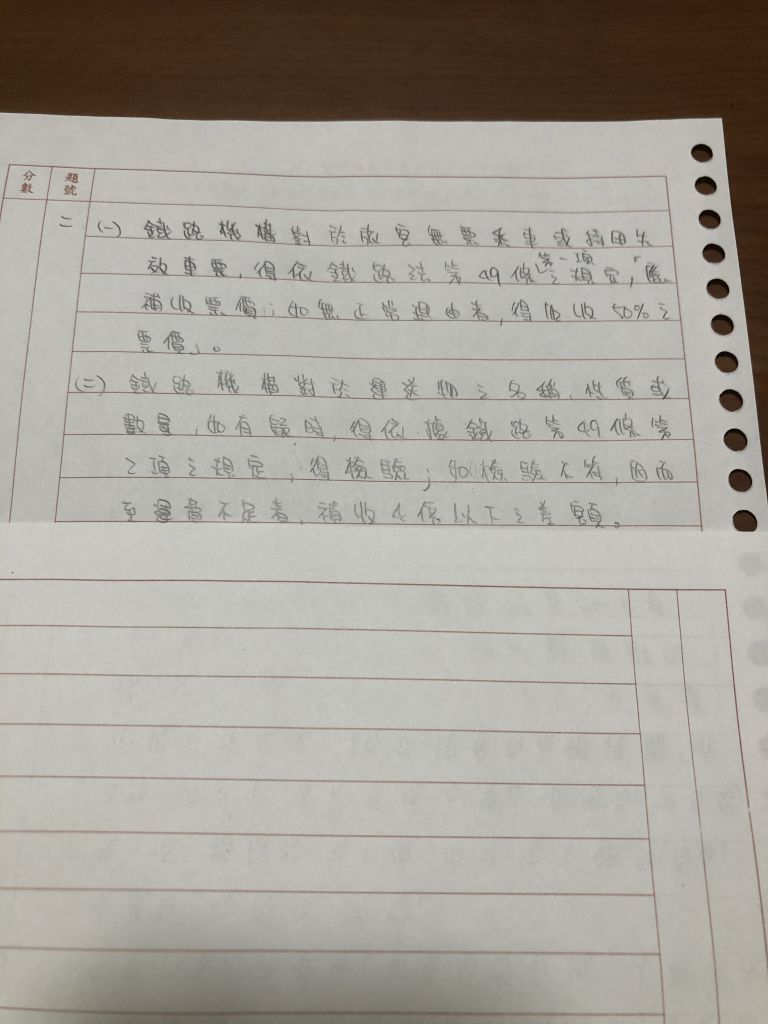 分數 題號
二 (一) 鐵路機構對於旅客無票乘車或持用失
效車票,得依鐵路法第49條第一項之規定,「應
補收票價;如無正當理由者,得加收50%之
票價」。
(二) 鐵路機構對於運送物之名稱、性質或
數量,如有疑時,得依據鐵路第49條第
2項之規定,得檢驗;如檢驗不符,因而
至運費不足者,補收4倍以下之差額。